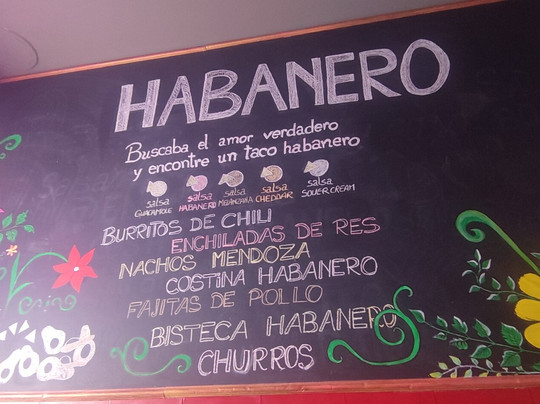 HABANERO
Buscaba el amor verdadero
y encontre un taco habanero
salsa GUACAMOLE
salsa HABANERO
salsa
salsa CHEDDAR
salsa SOUER CREAM
BURRITOS DE CHILI
ENCHILADAS DE RES
NACHOS MENDOZA
COSTINA HABANERO
FAJITAS DE POLLO
BISTECA HABANERO
CHURROS